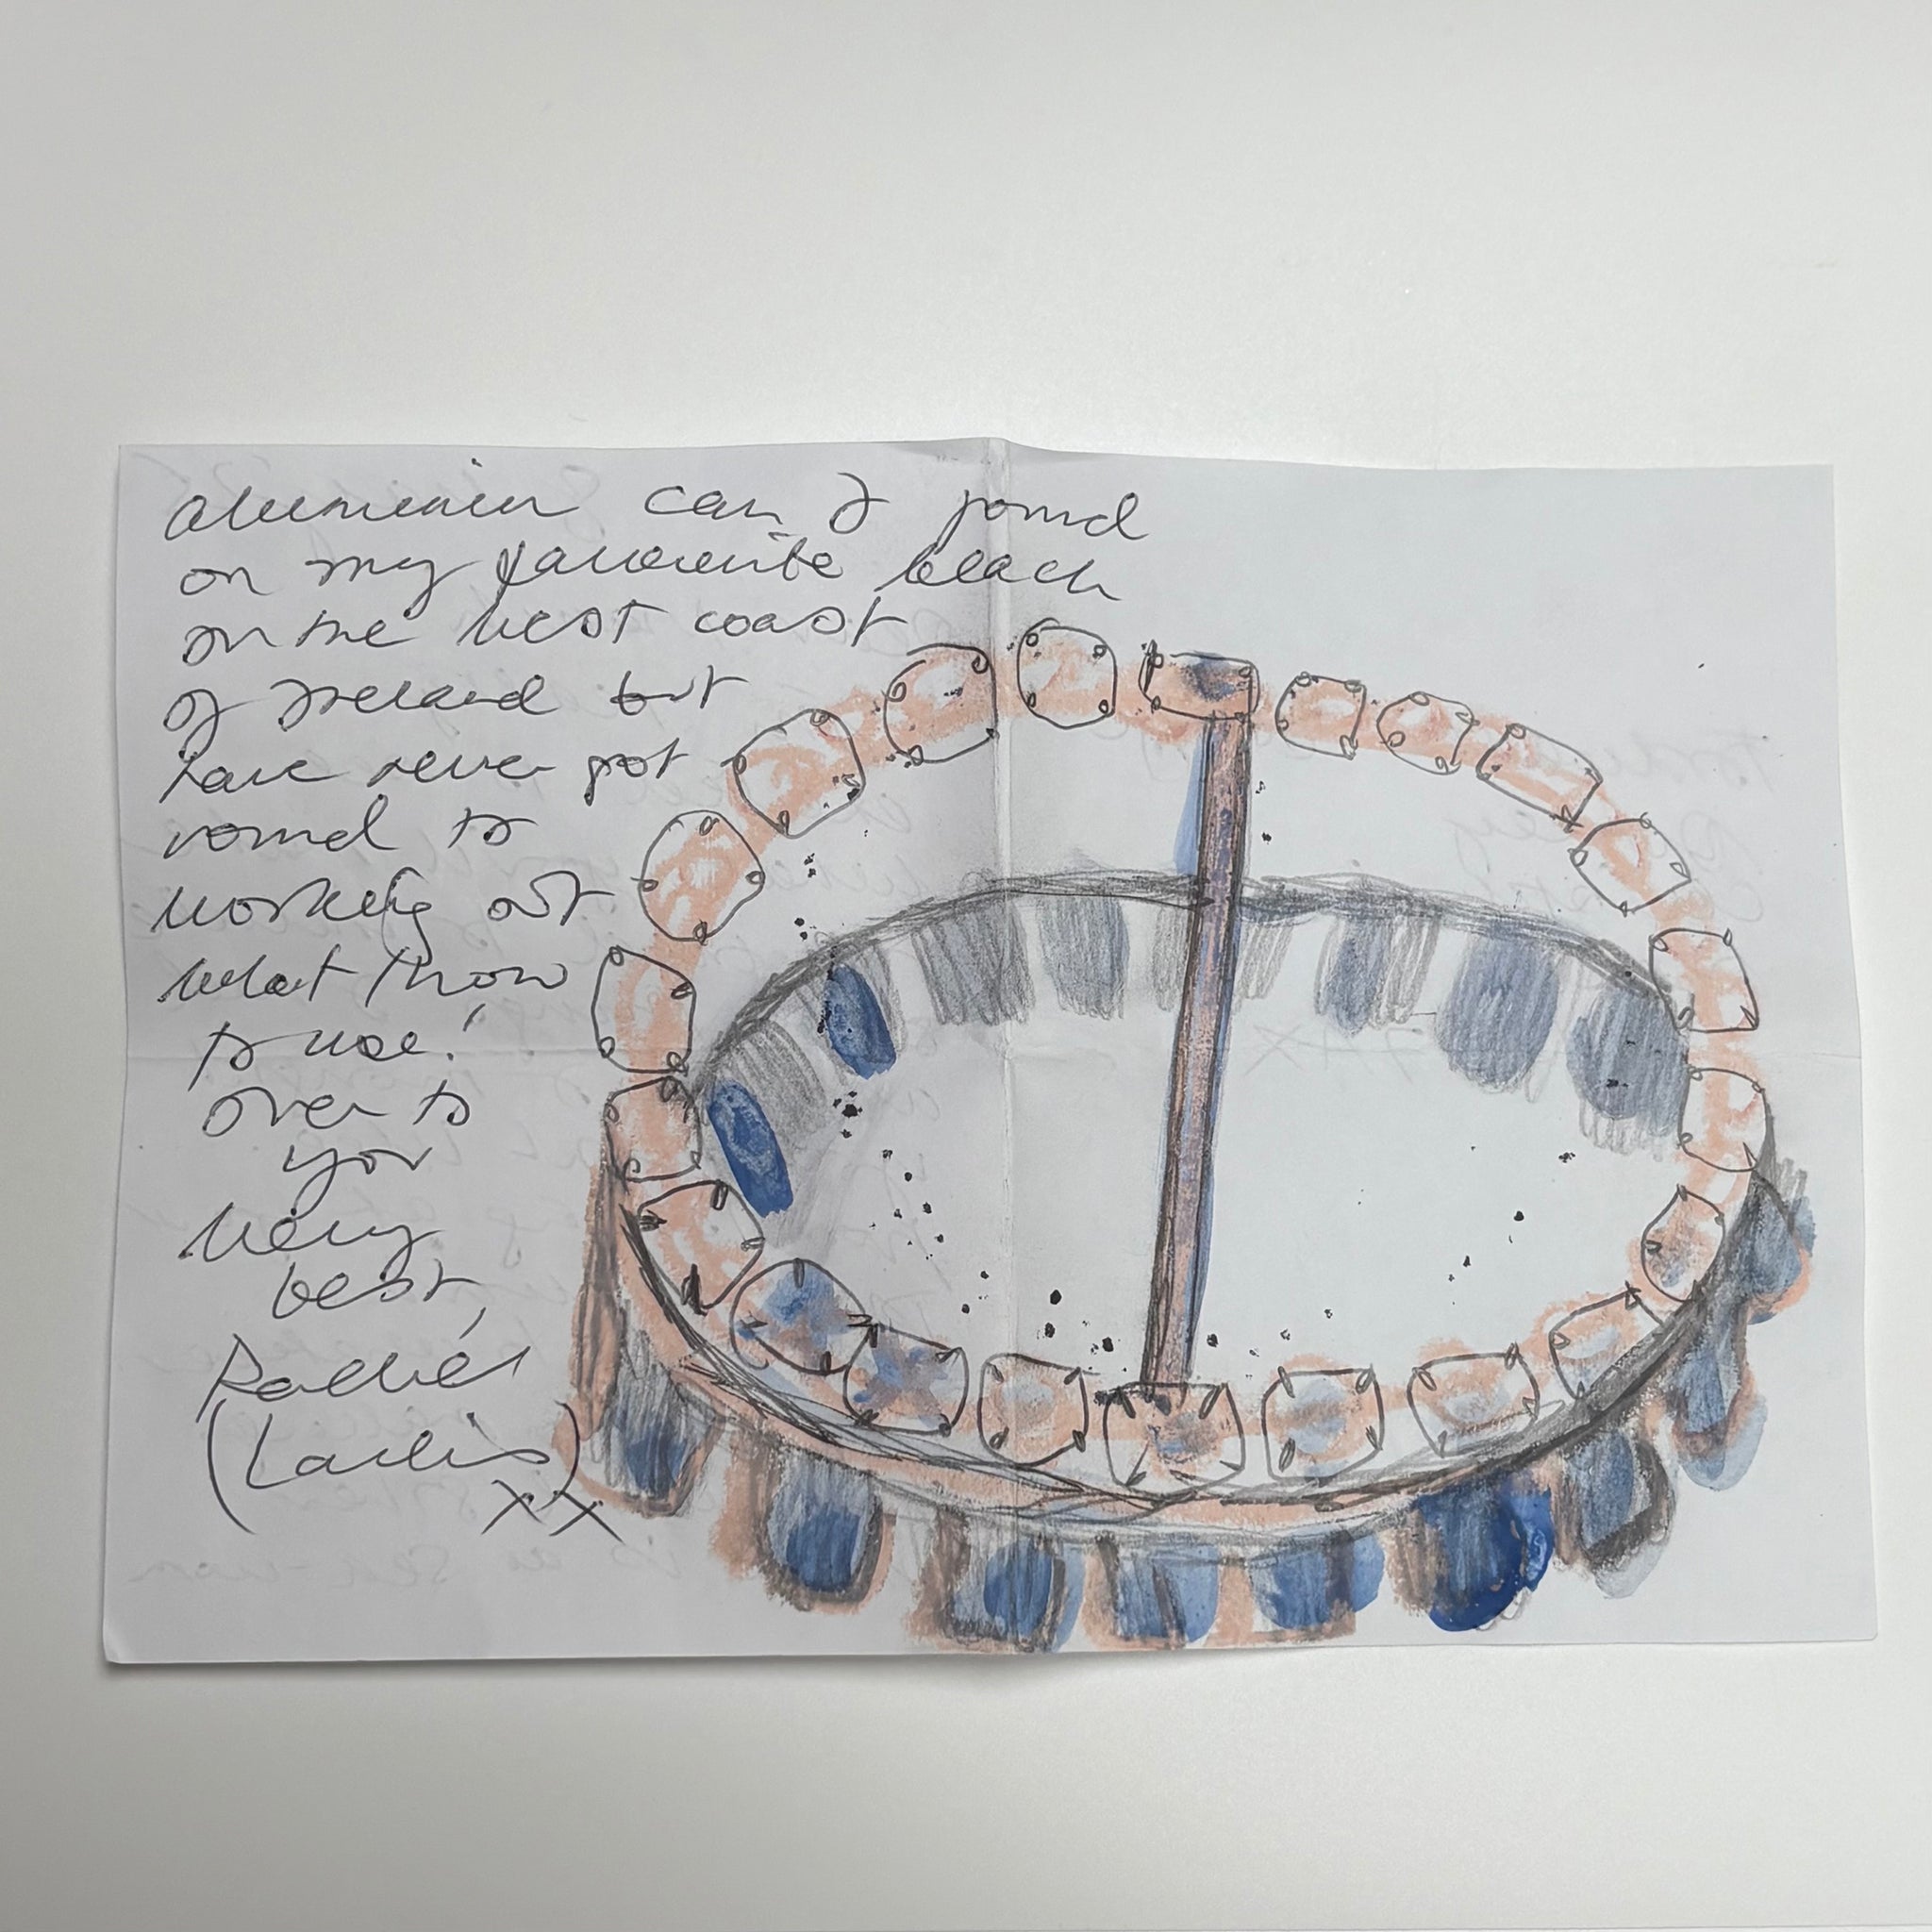 aluminium can I found
on my favourite beach
on the west coast
of Ireland but
have never got
round to
working out
what / how
to use!
over to
you
very
best,
Rachel
(Larkins)
xx